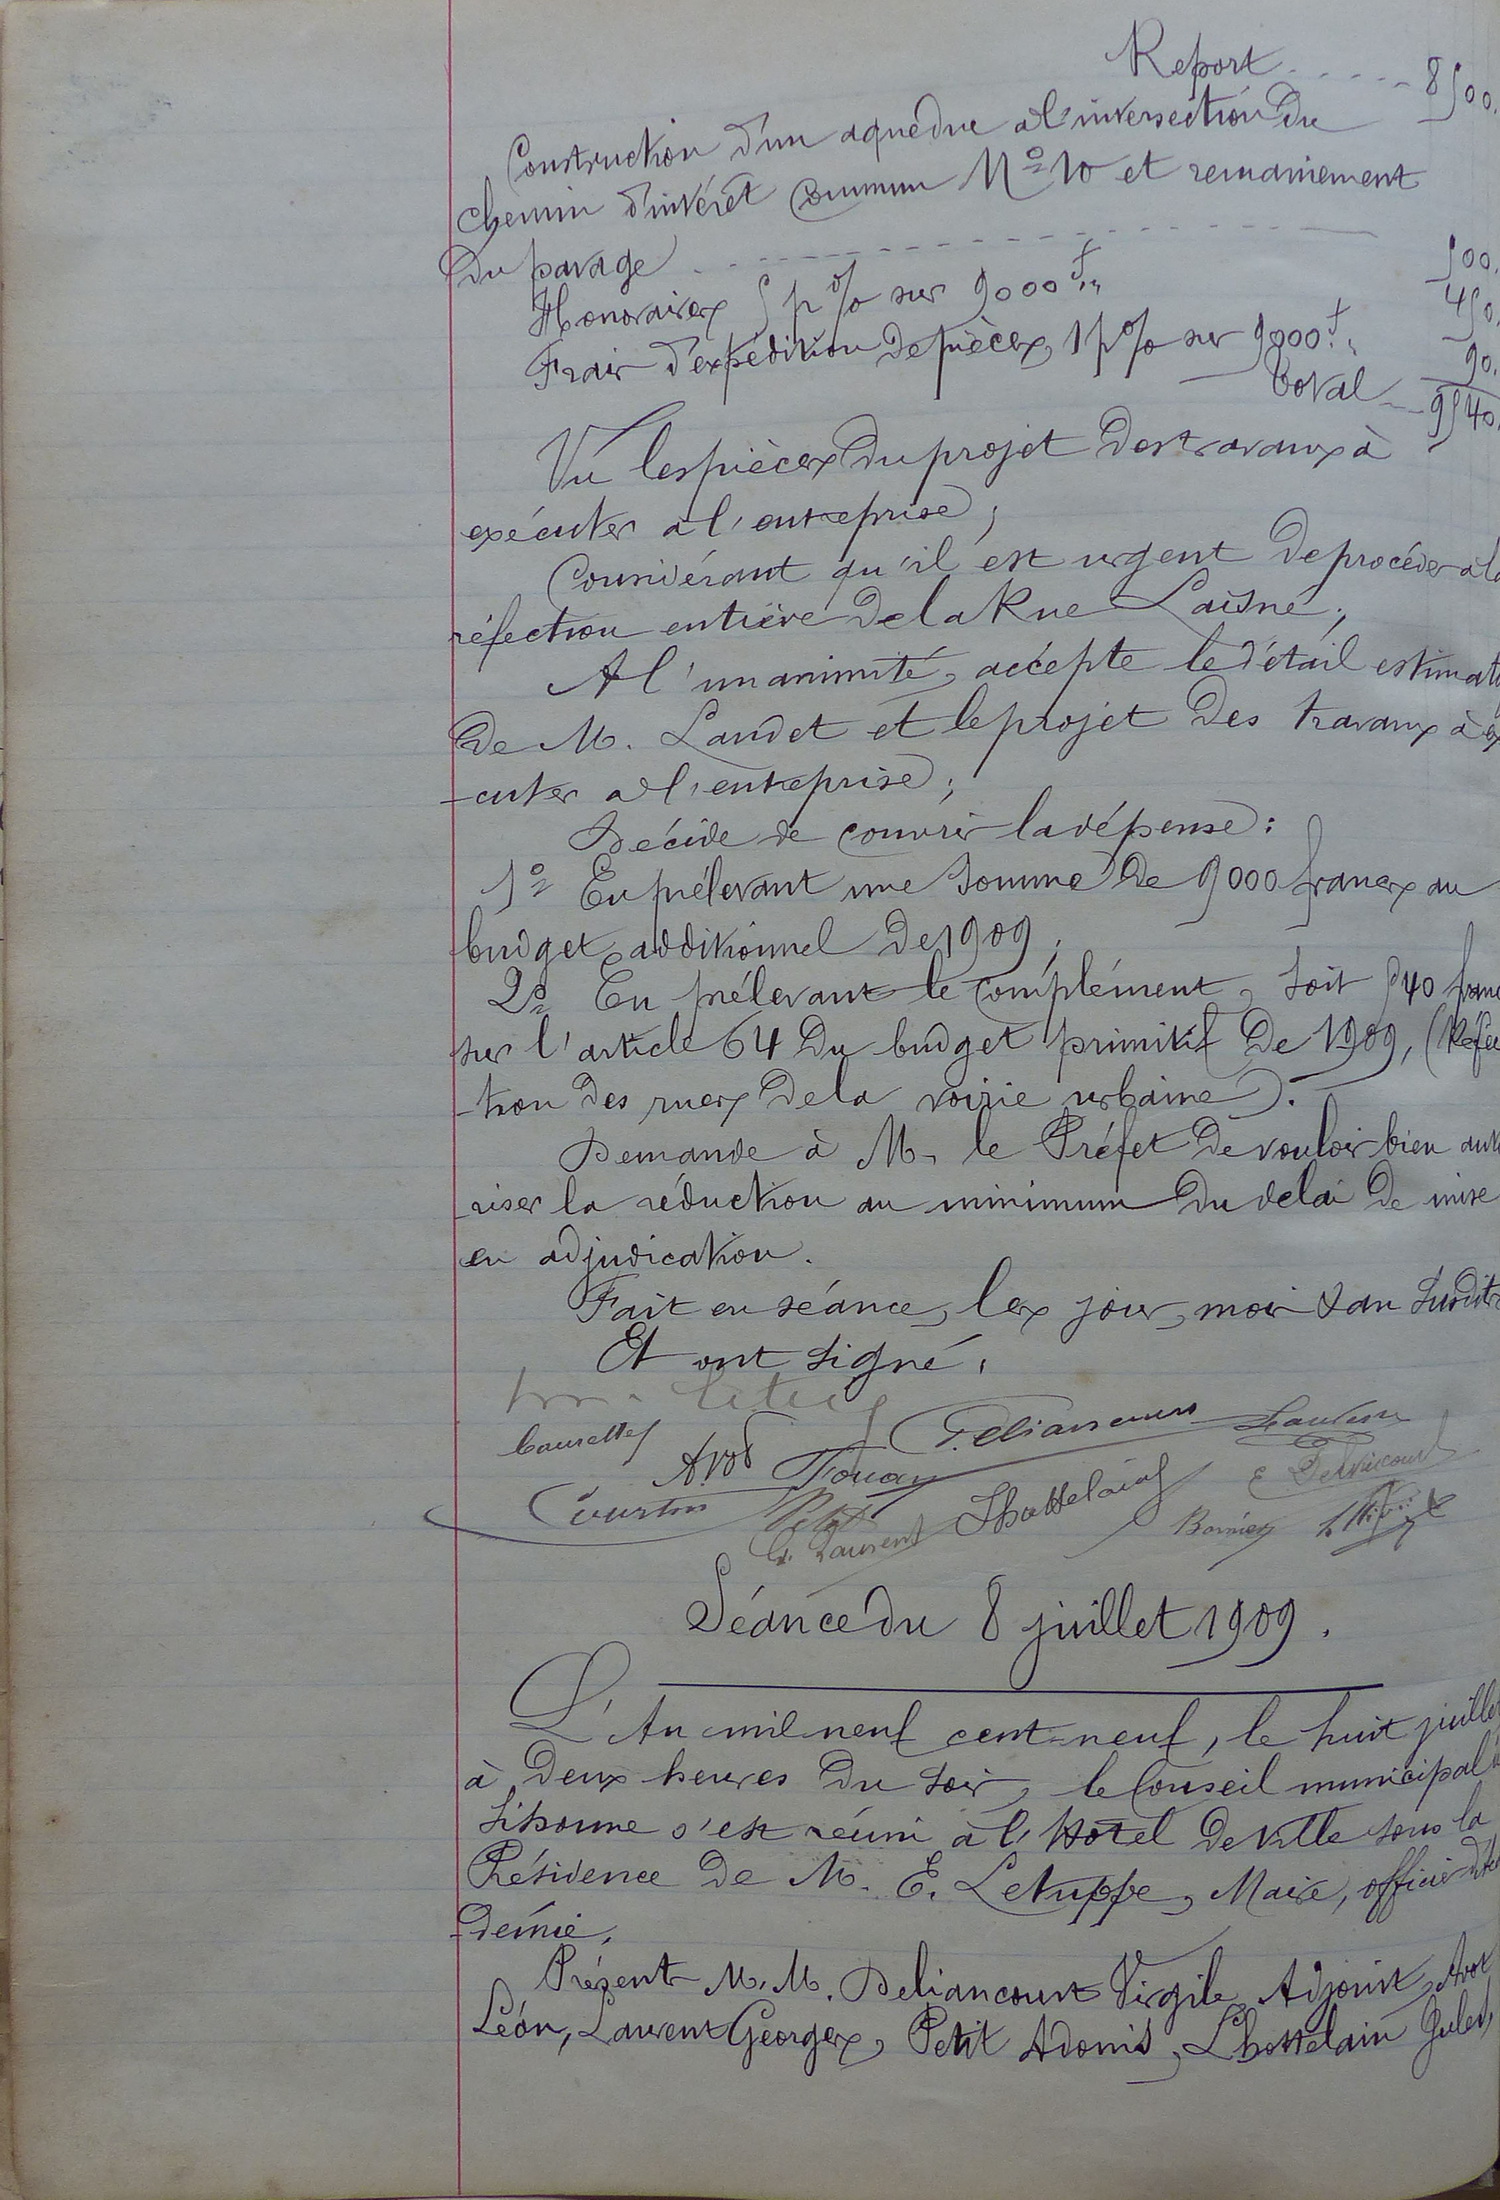 Report ..... 8500.
Construction d'un aqueduc à l'intersection du
chemin d'intérêt commun Nº 10 et remaniement
du pavage ............ 500.
Honoraires 5 p % sur 9000 f.,, 450.
Frais d'expédition de pièces, 1 p % sur 9000 f.,, 90.
Total ... 9540.
Vu les pièces du projet des travaux à
exécuter à l'entreprise;
Considérant qu'il est urgent de procéder à la
réfection entière de la Rue Laisné;
A l'unanimité, accepte le détail estimati
de M. Landet et le projet des travaux à ex
-cuter à l'entreprise;
Décide de couvrir la dépense:
1º En prélevant une somme de 9000 francs au
budget additionnel de 1909;
2º En prélevant le complément, soit 540 franc
sur l'article 64 du budget primitif de 1909, (Réfec
-tion des rues de la voirie urbaine).
Demande à M. le Préfet de vouloir bien auto
-riser la réduction au minimum du délai de mise
en adjudication.
Fait en séance, les jour, mois & an susdits
Et ont signé.
Avot Deliancourt
Courtin Petit
G. Laurent Lhottelain
Séance du 8 juillet 1909.
L'An mil neuf cent-neuf, le huit juillet
à deux heures du soir, le Conseil municipal
Sissonne s'est réuni à l'Hôtel de Ville sous la
Présidence de M. E. Letuppe, Maire, officier d'Aca
-démie.
Présents M. M. Deliancourt Virgile, Adjoint, Avot
Léon, Laurent Georges, Petit Adonis, Lhottelain Jules,